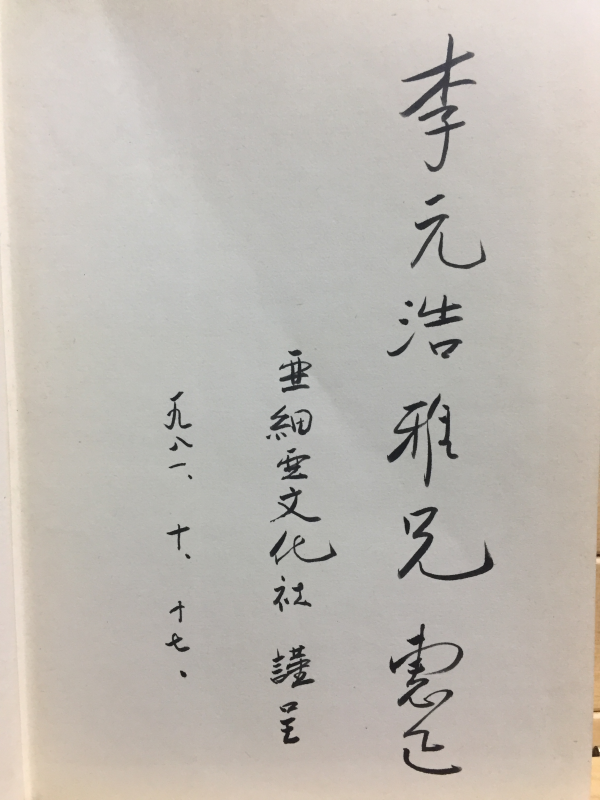 李元浩雅兄惠存
亜細亜文化社 謹呈
一九八一、十、十七、